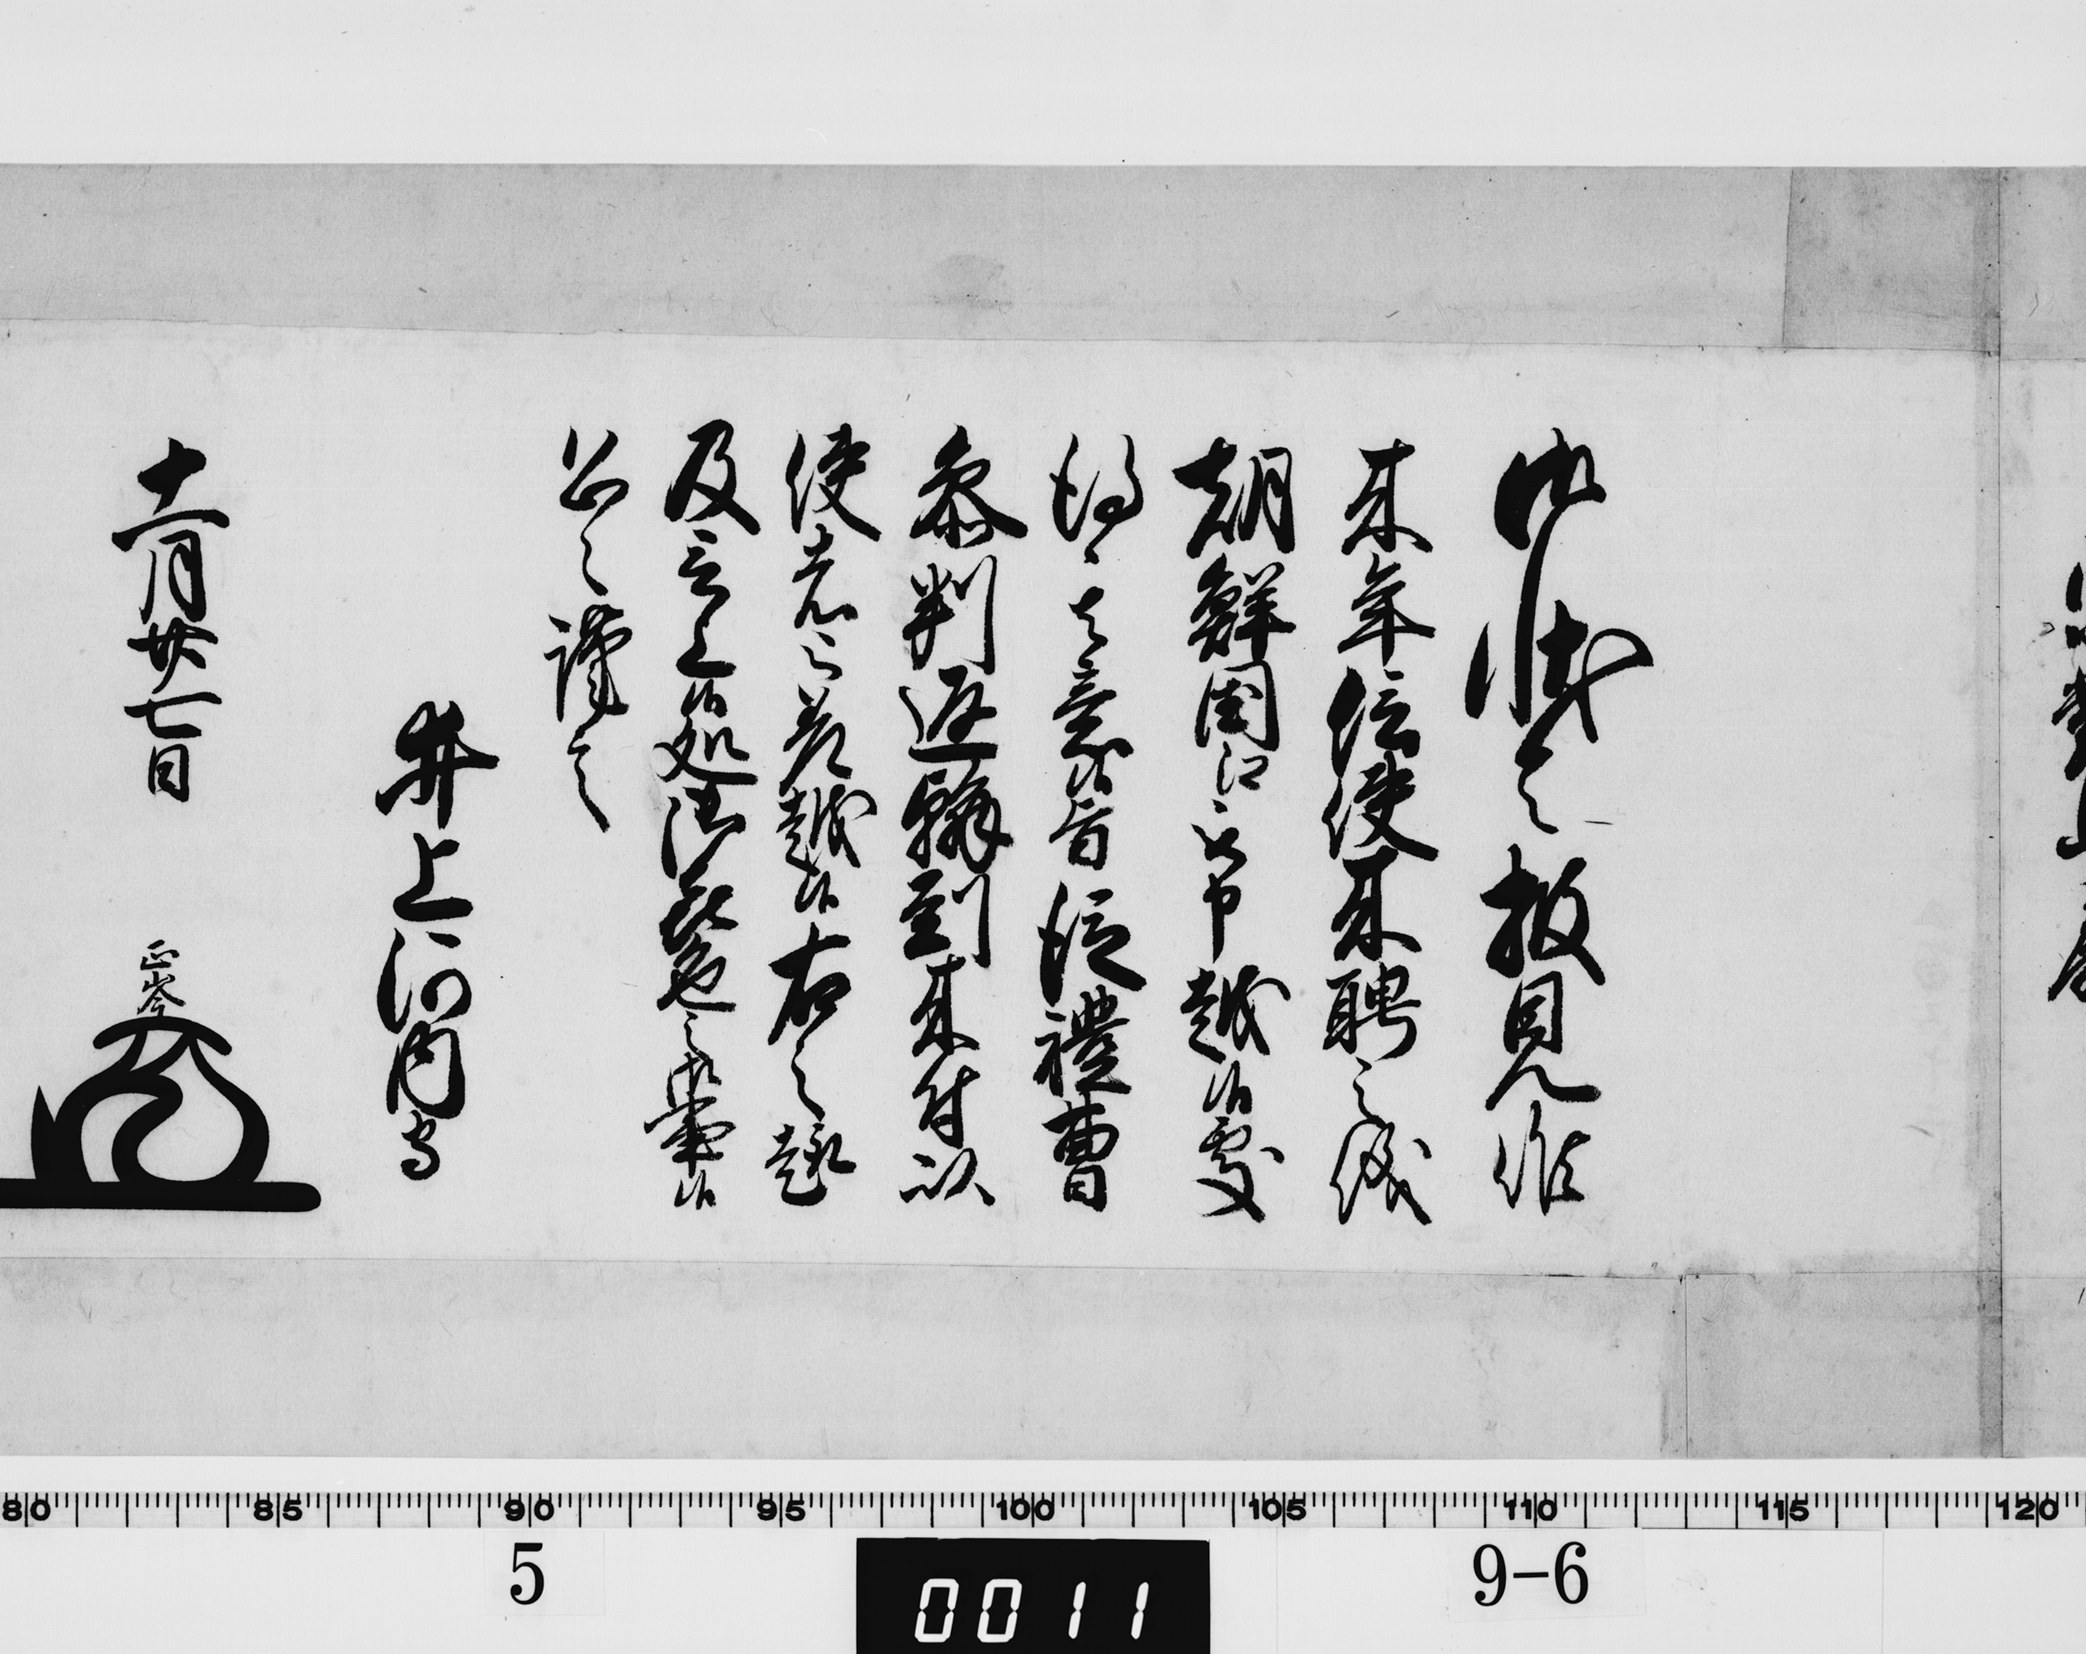 御状令披見候
来年信使来聘之儀
朝鮮国江被申越候処
得其意候旨従禮曹
参判返翰到来付以
使者被差越候右之趣
及言上候処御喜色之御事候
恐々謹言
井上河内守
十一月廿七日 正岑
80 85 90 95 100 105 110 115 120
5 0011 9-6